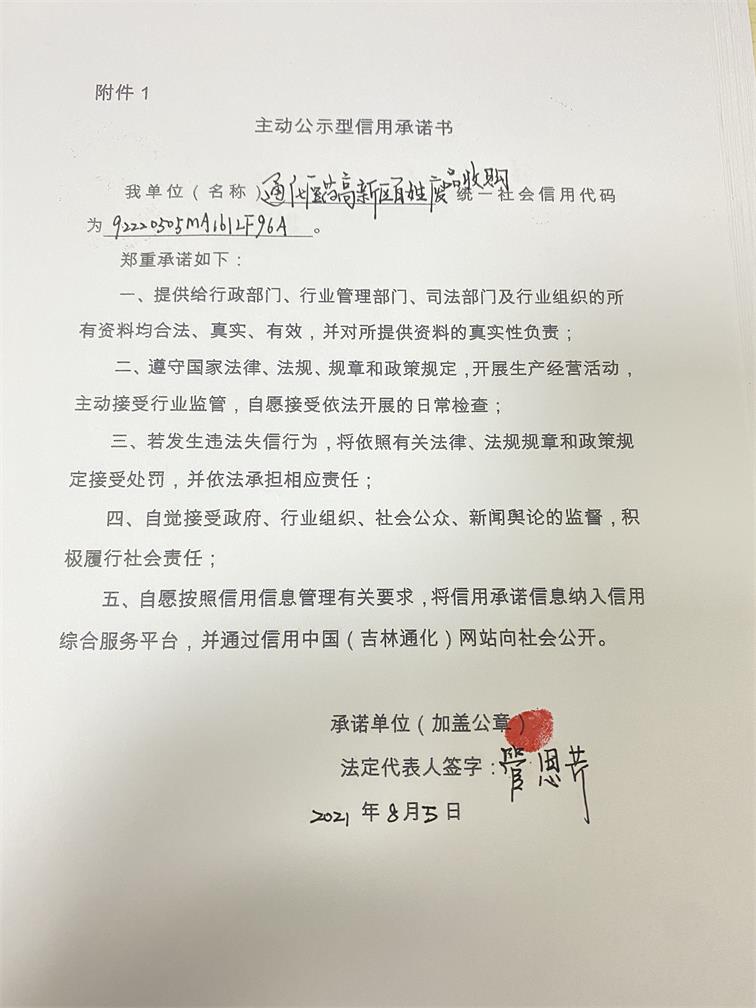 附件1
主动公示型信用承诺书
我单位（名称）通化医药高新区百姓废品收购统一社会信用代码
为92220505MA161LF96A。
郑重承诺如下：
一、提供给行政部门、行业管理部门、司法部门及行业组织的所
有资料均合法、真实、有效，并对所提供资料的真实性负责；
二、遵守国家法律、法规、规章和政策规定，开展生产经营活动，
主动接受行业监管，自愿接受依法开展的日常检查；
三、若发生违法失信行为，将依照有关法律、法规规章和政策规
定接受处罚，并依法承担相应责任；
四、自觉接受政府、行业组织、社会公众、新闻舆论的监督，积
极履行社会责任；
五、自愿按照信用信息管理有关要求，将信用承诺信息纳入信用
综合服务平台，并通过信用中国（吉林通化）网站向社会公开。
承诺单位（加盖公章）
法定代表人签字：管恩芹
2021年8月5日